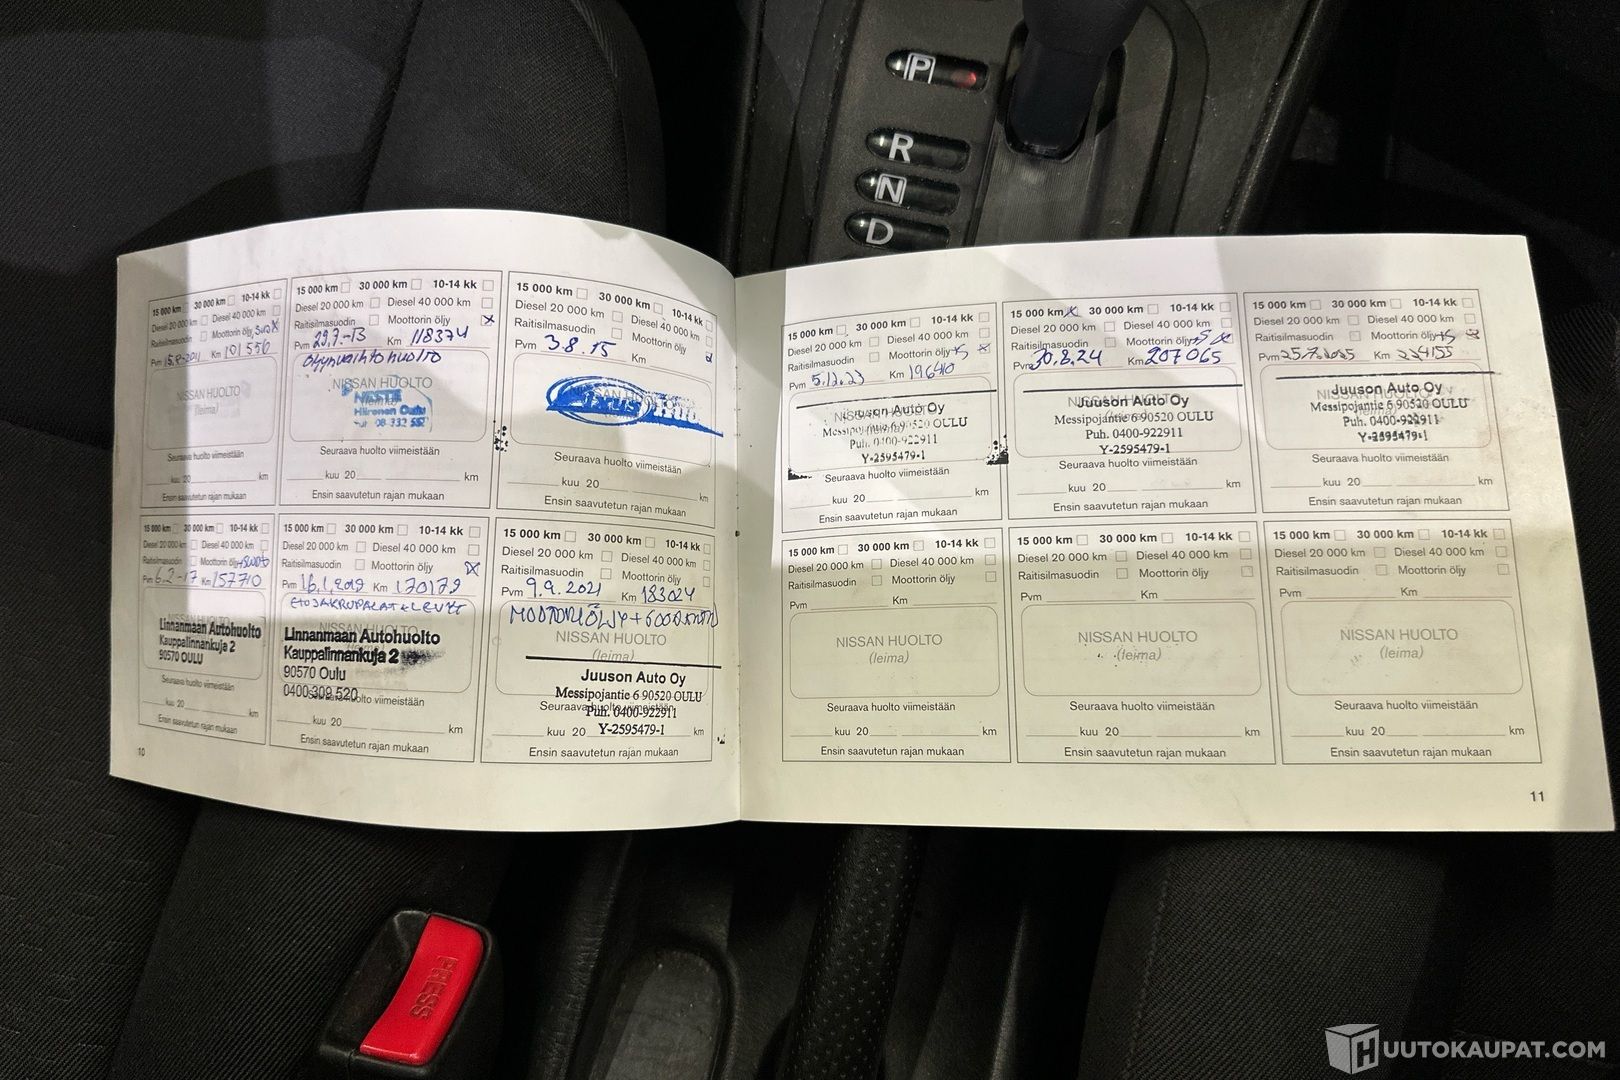 P
R
N
D
15 000 km 30 000 km 10-14 kk
Diesel 20 000 km Diesel 40 000 km
Raitisilmasuodin Moottorin öljy
Pvm Km 101 556
NISSAN HUOLTO
(leima)
Seuraava huolto viimeistään
kuu 20 km
Ensin saavutetun rajan mukaan
15 000 km 30 000 km 10-14 kk
Diesel 20 000 km Diesel 40 000 km
Raitisilmasuodin Moottorin öljy X
Pvm 29.7.-13 Km 118374
öljynvaihtohuolto
NISSAN HUOLTO
NESTE
Hiironen Oulu
Seuraava huolto viimeistään
kuu 20 km
Ensin saavutetun rajan mukaan
15 000 km 30 000 km 10-14 kk
Diesel 20 000 km Diesel 40 000 km
Raitisilmasuodin Moottorin öljy
Pvm 3.8.15 Km
Seuraava huolto viimeistään
kuu 20 km
Ensin saavutetun rajan mukaan
15 000 km 30 000 km 10-14 kk
Diesel 20 000 km Diesel 40 000 km
Raitisilmasuodin Moottorin öljy
Pvm 6.2-17 Km 157710
Linnanmaan Autohuolto
Kauppalinnankuja 2
90570 OULU
Seuraava huolto viimeistään
kuu 20 km
Ensin saavutetun rajan mukaan
15 000 km 30 000 km 10-14 kk
Diesel 20 000 km Diesel 40 000 km
Raitisilmasuodin Moottorin öljy X
Pvm 16.1.2019 Km 170179
ETUJARRUPALAT + LEVYT
NISSAN HUOLTO
Linnanmaan Autohuolto
Kauppalinnankuja 2
90570 Oulu
0400 309 520
Seuraava huolto viimeistään
kuu 20 km
Ensin saavutetun rajan mukaan
15 000 km 30 000 km 10-14 kk
Diesel 20 000 km Diesel 40 000 km
Raitisilmasuodin Moottorin öljy
Pvm 9.9.2021 Km 183024
MOOTTORIÖLJY + SUODATIN
NISSAN HUOLTO
(leima)
Juuson Auto Oy
Messipojantie 6 90520 OULU
Seuraava huolto viimeistään
Puh. 0400-922911
kuu 20 Y-2595479-1 km
Ensin saavutetun rajan mukaan
10
15 000 km 30 000 km 10-14 kk
Diesel 20 000 km Diesel 40 000 km
Raitisilmasuodin Moottorin öljy +S X
Pvm 5.12.23 Km 196410
Juuson Auto Oy
Messipojantie 6 90520 OULU
Puh. 0400-922911
Y-2595479-1
Seuraava huolto viimeistään
kuu 20 km
Ensin saavutetun rajan mukaan
15 000 km X 30 000 km 10-14 kk
Diesel 20 000 km Diesel 40 000 km
Raitisilmasuodin Moottorin öljy +S X
Pvm 30.8.24 Km 207065
Juuson Auto Oy
Messipojantie 6 90520 OULU
Puh. 0400-922911
Y-2595479-1
Seuraava huolto viimeistään
kuu 20 km
Ensin saavutetun rajan mukaan
15 000 km 30 000 km 10-14 kk
Diesel 20 000 km Diesel 40 000 km
Raitisilmasuodin Moottorin öljy +S X
Pvm 25.7.2025 Km
Juuson Auto Oy
Messipojantie 6 90520 OULU
Puh. 0400-922911
Y-2595479-1
Seuraava huolto viimeistään
kuu 20 km
Ensin saavutetun rajan mukaan
15 000 km 30 000 km 10-14 kk
Diesel 20 000 km Diesel 40 000 km
Raitisilmasuodin Moottorin öljy
Pvm Km
NISSAN HUOLTO
(leima)
Seuraava huolto viimeistään
kuu 20 km
Ensin saavutetun rajan mukaan
15 000 km 30 000 km 10-14 kk
Diesel 20 000 km Diesel 40 000 km
Raitisilmasuodin Moottorin öljy
Pvm Km
NISSAN HUOLTO
(leima)
Seuraava huolto viimeistään
kuu 20 km
Ensin saavutetun rajan mukaan
15 000 km 30 000 km 10-14 kk
Diesel 20 000 km Diesel 40 000 km
Raitisilmasuodin Moottorin öljy
Pvm Km
NISSAN HUOLTO
(leima)
Seuraava huolto viimeistään
kuu 20 km
Ensin saavutetun rajan mukaan
11
PRESS
HUUTOKAUPAT.COM